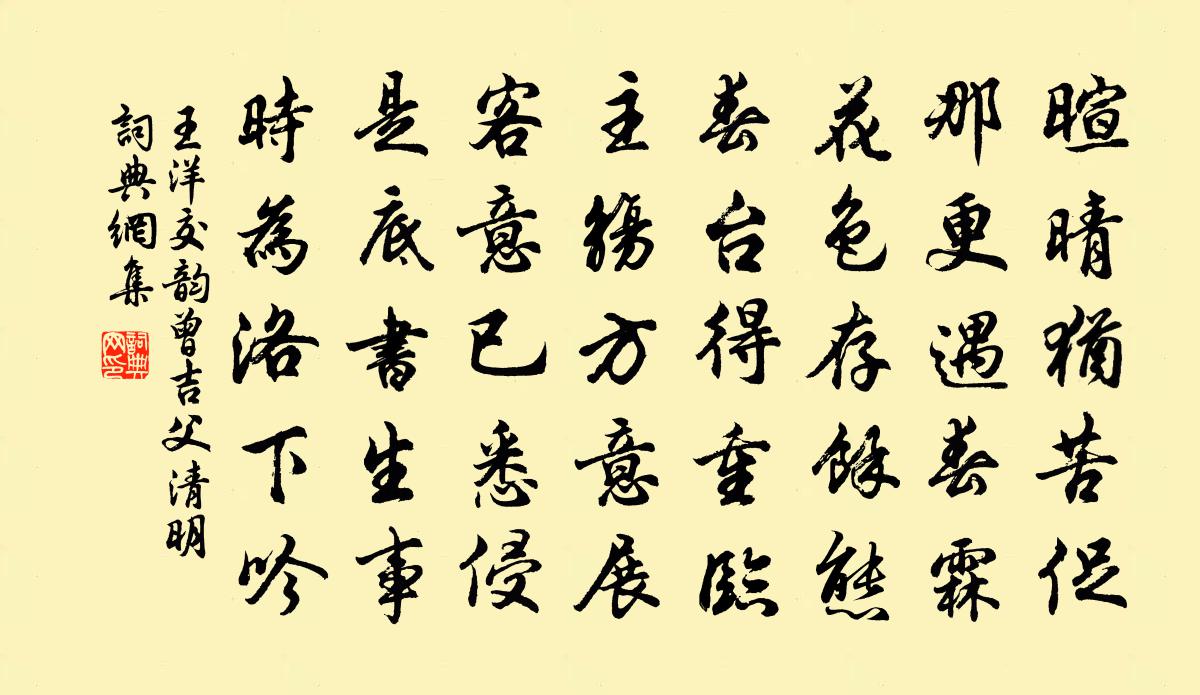 暄晴猶苦促
那更遇春霖
花色存餘態
春台得重臨
主觴方意展
客意已悉侵
是底書生事
時為洛下吟
王洋交韵曾吉父清明
詞典網集
詞典網印